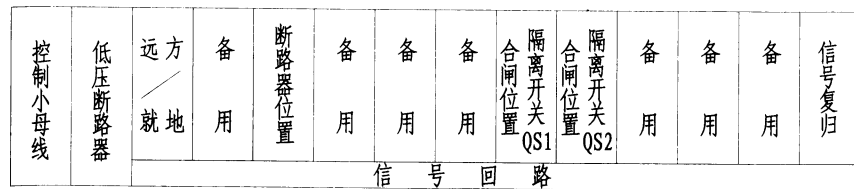 控制小母线
低压断路器
远方/就地
备用
断路器位置
备用
备用
备用
隔离开关QS1
合闸位置
隔离开关QS2
合闸位置
备用
备用
备用
信号复归
信号回路